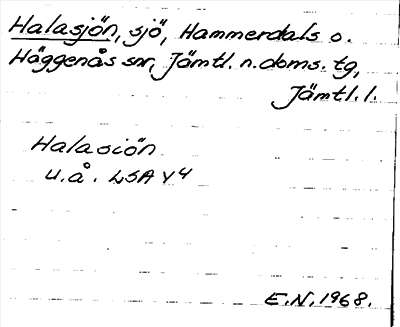 Halasjön, sjö, Hammerdals o.
Häggenås snr, Jämtl. n. doms. tg,
Jämtl. l.
Halasiön
u.å. LSA Y4
E.N. 1968.